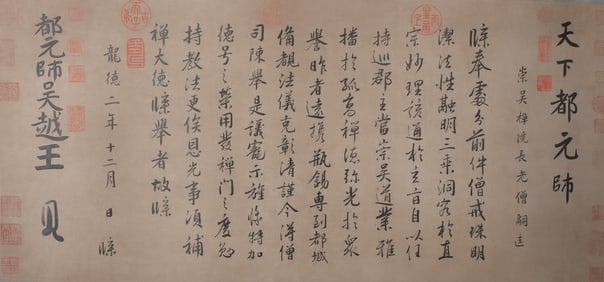 天下都元帥
崇吳禪院長老僧嗣匡
牒奉處分前件僧戒珠明
潔法性融明三乘洞究於直
宗妙理該通於玄旨自以住
持巡郡主當崇吳道業雅
播於孤高禪德弥光於衆
譽昨者遠攜瓶錫專到都城
備覩法儀克彰清謹今得僧
司陳舉是議寵示旌特加
德号之榮用發禪門之慶勉
持教法更俟恩光事須補
禪大德牒舉者故牒
龍德二年十二月 日 牒
都元帥吳越王